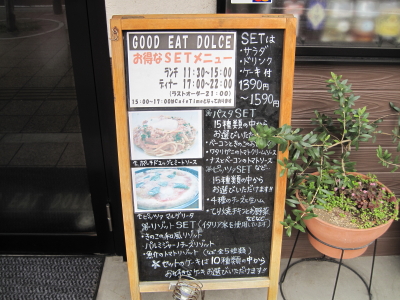 GOOD EAT DOLCE
お得なSETメニュー
ランチ 11:30～15:00
ディナー 17:00～22:00
(ラストオーダー 21:00)
15:00～17:00はCafeTimeとなっております
SETは
・サラダ
・ドリンク
・ケーキ付
1390円
～1590円
パスタSET
15種類の中から
お選びいただけ
・ナスとベーコンのトマトソース
ピッツァSET
15種類の中から
お選びいただけます!!
・4種のチーズと生ハム
・てり焼チキンとお野菜
などなど
ピッツァ マルゲリータ
リゾットSET(イタリア米を使用しています)
・きのこの和風リゾット
・パルミジャーノチーズリゾット
・魚介のトマトリゾット(など全5種類)
セットのケーキは10種類の中から
お好きなケーキお選びいただけます!!